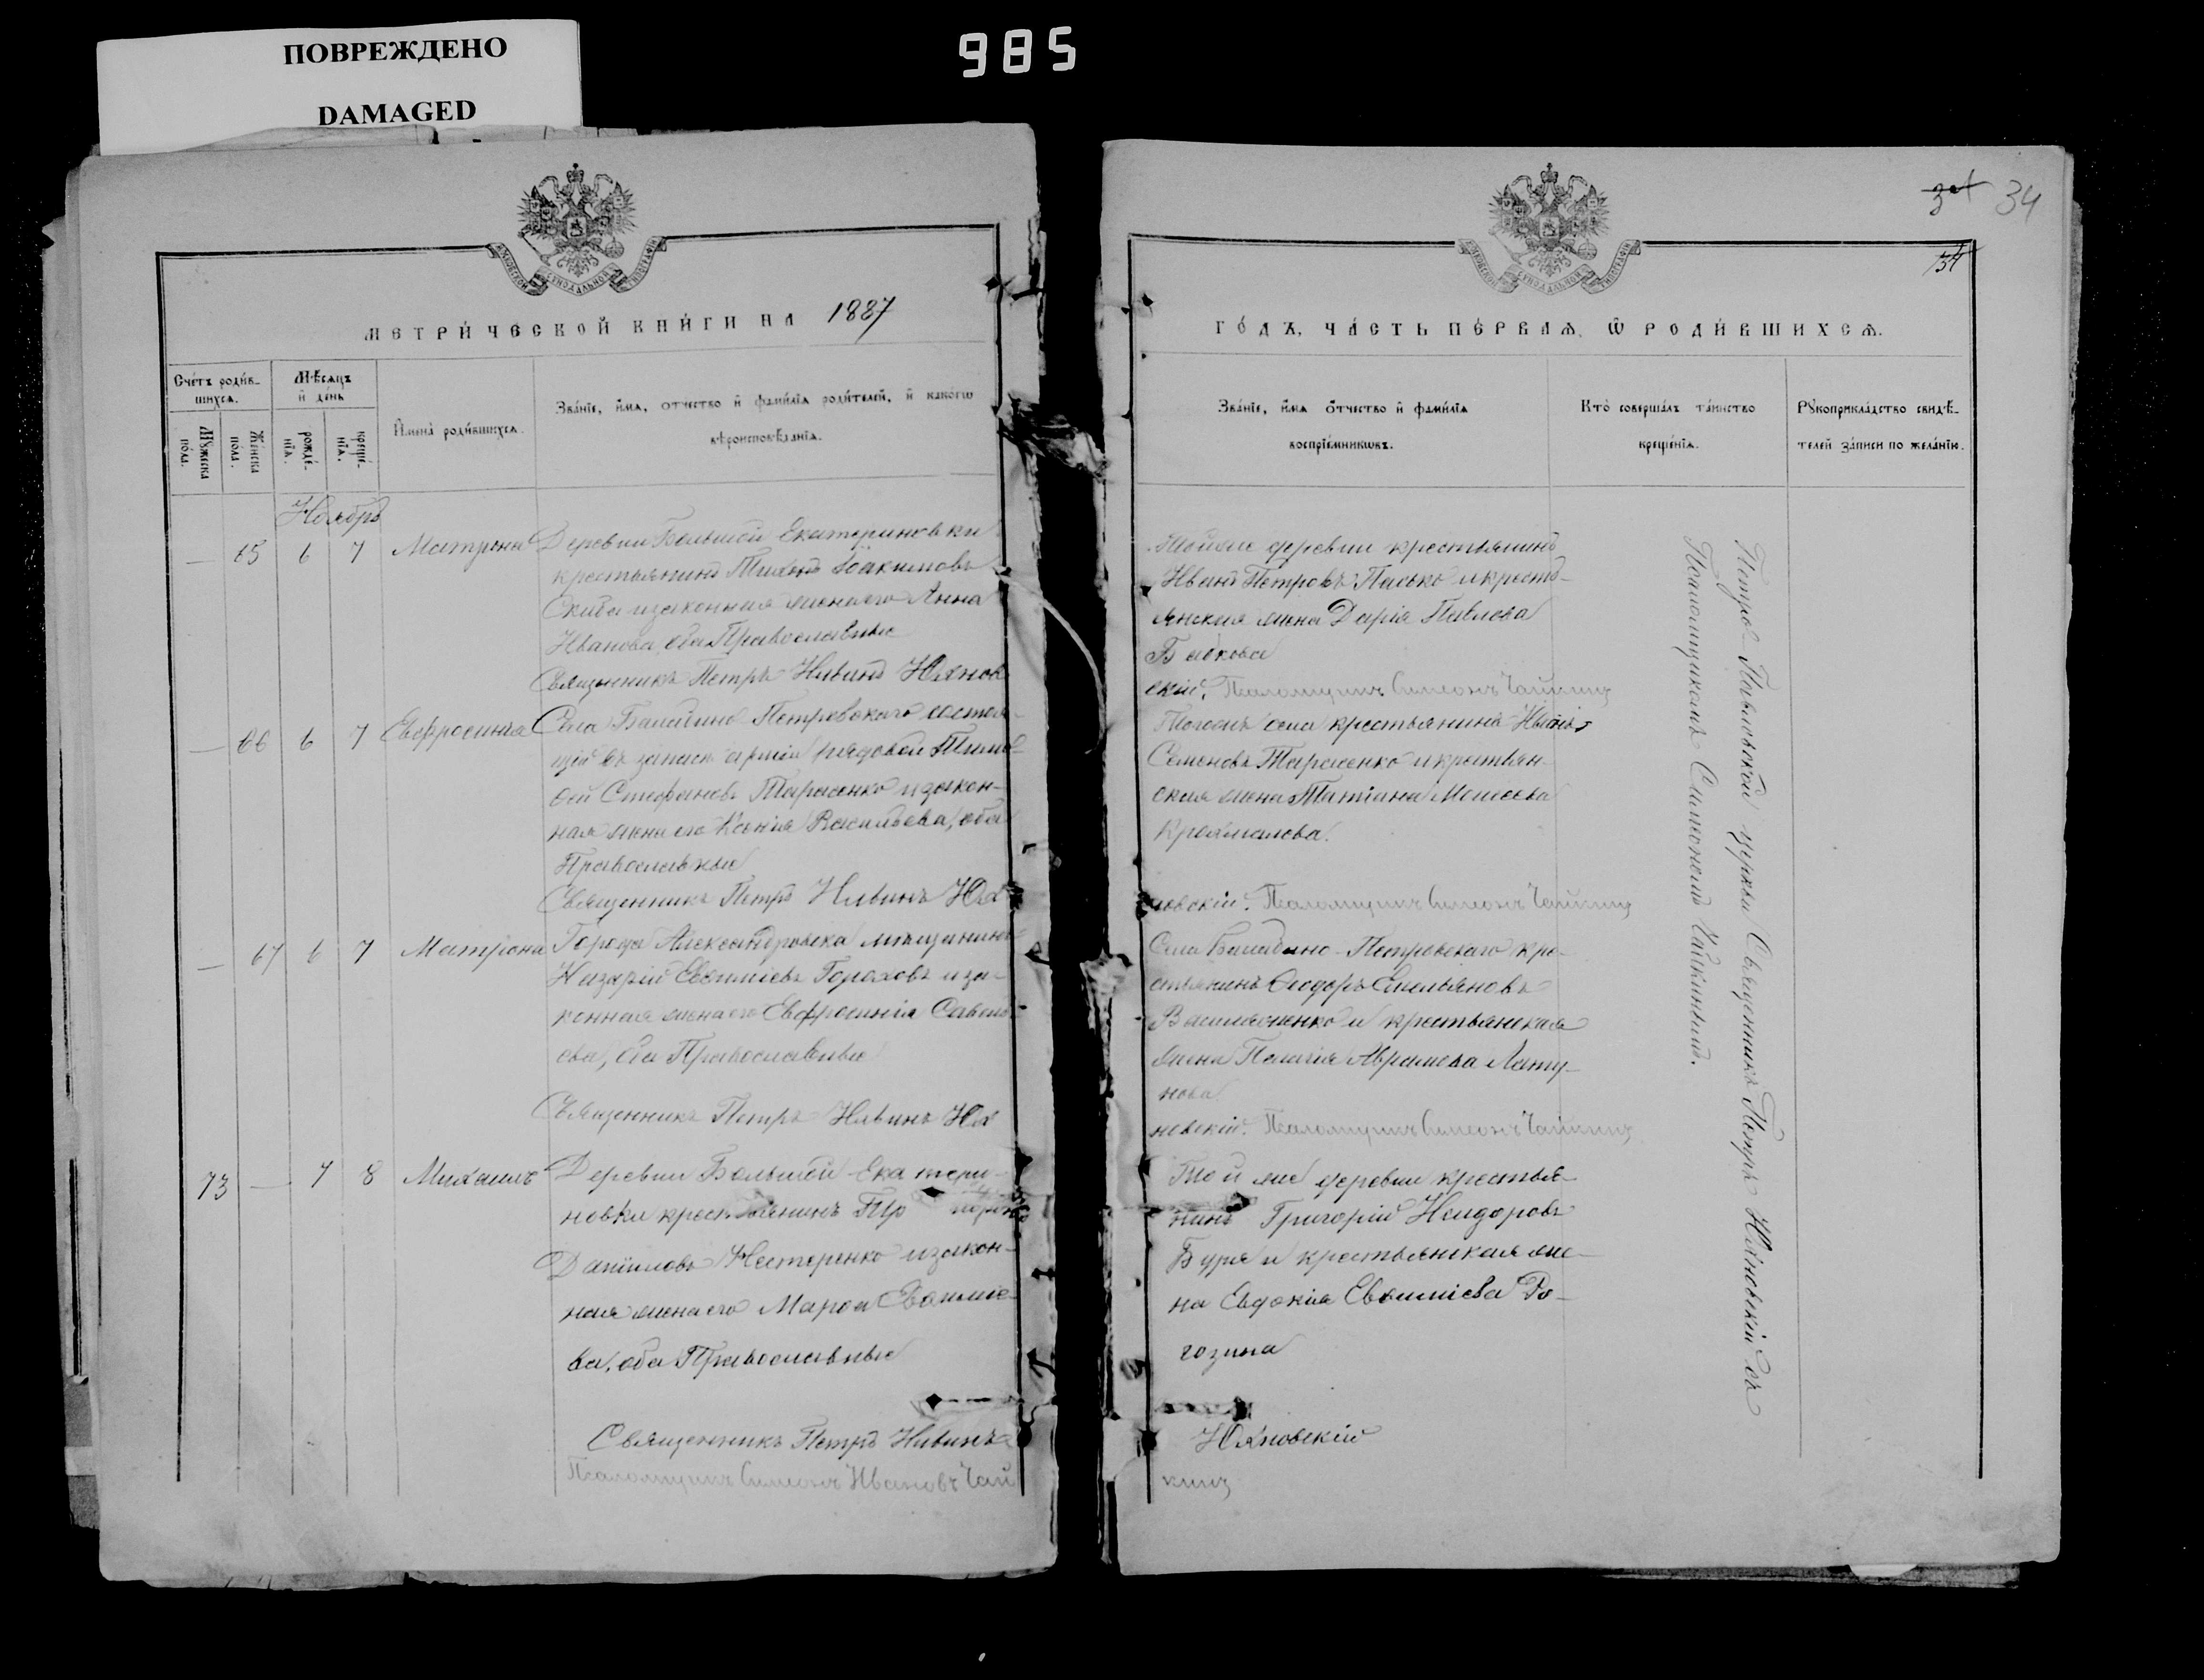 ПОВРЕЖДЕНО
DAMAGED
985
34
34
МЕТРИ́ЧЕСКОЙ КНИ́ГИ НА 1887
Сче́тъ роди́в-
шихсѧ.
Мѣ́сѧцъ
и҆ де́нь
Мꙋ́жеска
по́ла.
Же́нска
по́ла.
рожде́-
нїѧ.
креще́-
нїѧ.
И҆мена̀ роди́вшихсѧ.
Зва́нїе, и҆́мѧ, ѻ҆́тчество и҆ фами́лїѧ роди́телей, и҆ како́гѡ
вѣроисповѣ́данїѧ.
Ноябрь
— 65 6 7 Матрона Деревни Большой Екатериновки
крестьянинъ Тихонъ Іоакимовъ
Скиба и законная жена его Анна
Иванова, оба Православные
Священникъ Петръ Нивинъ Юханов
— 66 6 7 Евфросинія Села Балабино-Петровскаго состоя-
щій въ запасѣ арміи рядовой Тимо-
фей Стефановъ Тарасенко и закон-
ная жена его Ксенія Васильева, оба
Православные
Священникъ Петръ Нивинъ Юха
— 67 6 7 Матрона Города Александровска мѣщанинъ
Назарій Евѳиміевъ Гороховъ и за-
конная жена его Евфросинія Савель-
ева, оба Православные
Священникъ Петръ Нивинъ Юха
73 — 7 8 Михаилъ Деревни Большой Екатери-
новки крестьянинъ
Даниловъ Нестеренко и закон-
ная жена его Марѳа Евѳиміе-
ва, оба Православные
Священникъ Петръ Нивинъ
Псаломщикъ Симеонъ Ивановъ Чай
34
ГО́ДЪ, ЧА́СТЬ ПЕ́РВАѦ, Ѽ РОДИ́ВШИХСѦ.
Зва́нїе, и҆́мѧ ѻ҆́тчество и҆ фами́лїѧ
воспрїе́мникѡвъ.
Кто̀ соверша́лъ та́инство
креще́нїѧ.
Рꙋкоприкла́дство свидѣ́-
телей за́писи по жела́нїю.
Той же деревни крестьянинъ
Иванъ Петровъ Палько и кресть-
янская жена Дарія Павлова
Бабкова
скій. Псаломщикъ Симеонъ Чайкинъ
Того же села крестьянинъ Иванъ
Семеновъ Тарасенко и крестьян-
ская жена Татіана Моисеева
Крахмалова.
новскій. Псаломщикъ Симеонъ Чайкинъ
Села Балабино-Петровскаго кре-
стьянинъ Ѳеодоръ Емельяновъ
Василенко и крестьянская
жена Пелагія Аврамова Лату-
нова
новскій. Псаломщикъ Симеонъ Чайкинъ
Той же деревни крестья-
нинъ Григорій Исидоровъ
Буря и крестьянская же-
на Евдокія Евѳиміева Ро-
гозина
Юхановскій
кинъ
Петро-Павловской церкви Священникъ Петръ Юхановскій съ
Псаломщикомъ Симеономъ Чайкинымъ.